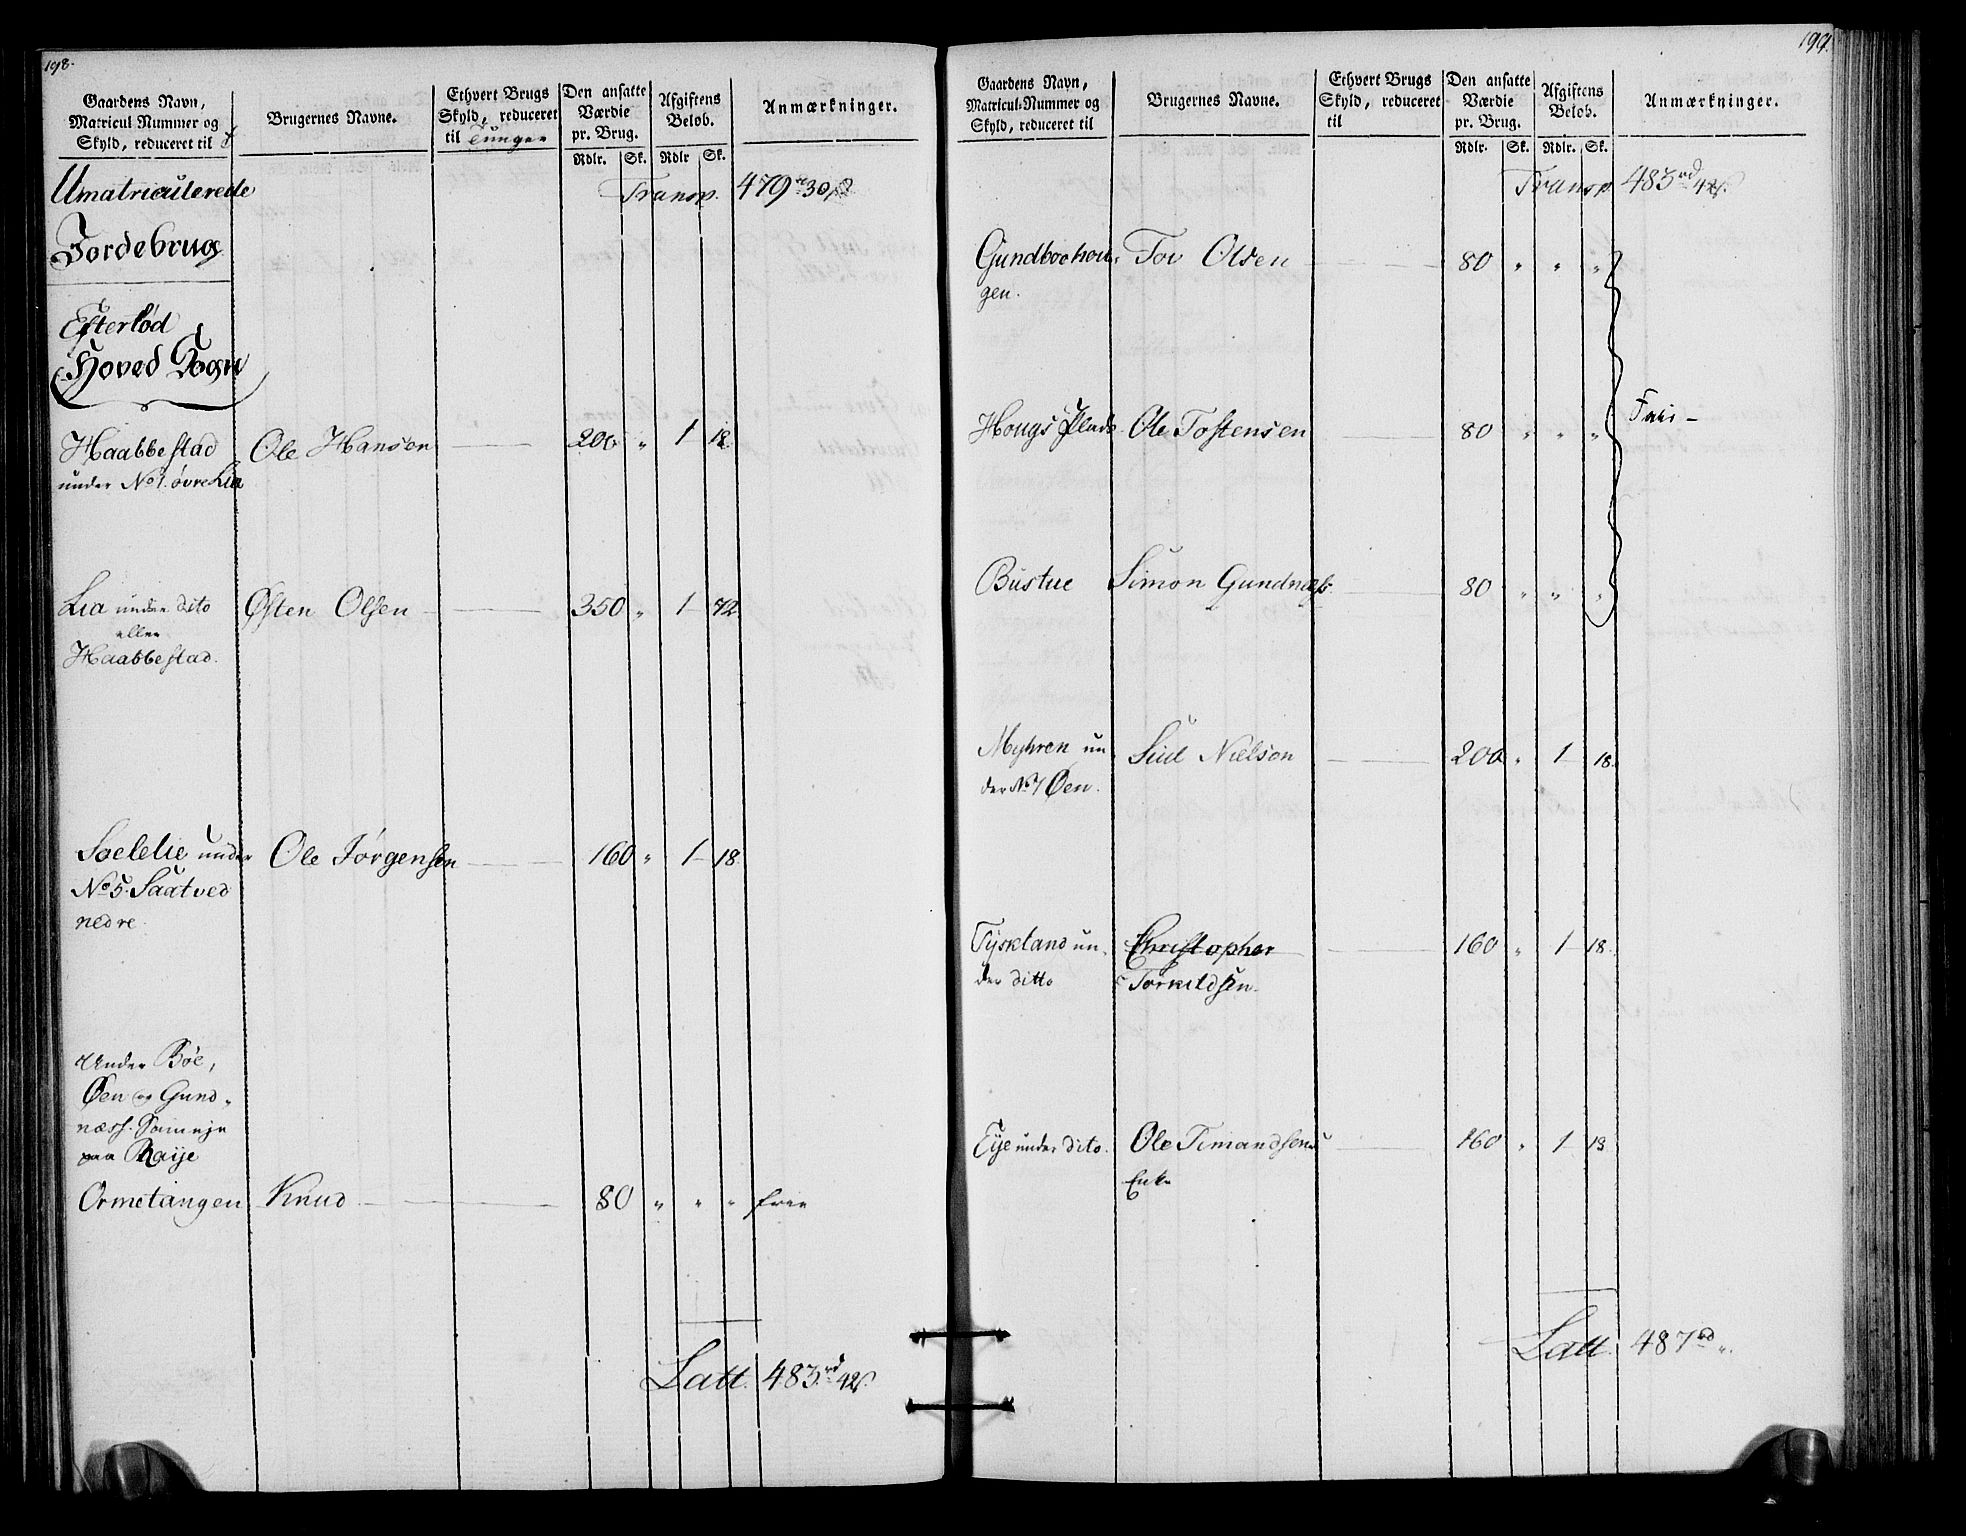 198.
Gaardens Navn,
Matricul Nummer og
Skyld, reduceret til
Brugernes Navne.
Ethvert Brugs
Skyld, reduceret
til Tunger
Den ansatte
Værdie
pr. Brug.
Rdlr. Sk.
Afgiftens
Beløb.
Rdlr Sk.
Anmærkninger.
Umatriculerede Transp. 479 rd 30 s
Jordebrug
Efterlød
Hoved Sogn
Haabbestad Ole Hansen 200 " 1 18
under No 1. øvre Lia
Lia under dito Østen Olsen 350 " 1 42
eller
Haabbestad.
Soelelie under Ole Jørgensen 160 " 1 18
No 5. Saatved
nedre
Under Bøe,
Øen og Gund-
næss. Sameje
paa Raije
Ormetangen Knud 80 " " " frie
Latt. 483 rd 42 s.
199.
Gaardens Navn,
Matricul-Nummer og
Skyld, reduceret til
Brugernes Navne.
Ethvert Brugs
Skyld, reduceret
til
Den ansatte
Værdie
pr. Brug.
Rdlr. Sk.
Afgiftens
Beløb.
Rdlr. Sk.
Anmærkninger.
Transp 483 rd 42 s.
Gundboehou- Tov Olsen 80 " " "
gen.
Hougs Plads Ole Tostensen 80 " " " Frie
Bustue Simon Gundnæss 80 " " "
Myhren un- Siul Nielsen 200 " 1 18.
der No 7 Øen.
Tyskland un- Christopher 160 " 1 18.
der ditto Torkildsen.
Eije under dito. Ole Timandsens 160 " 1 18
Enke
Latt. 487 rd ".